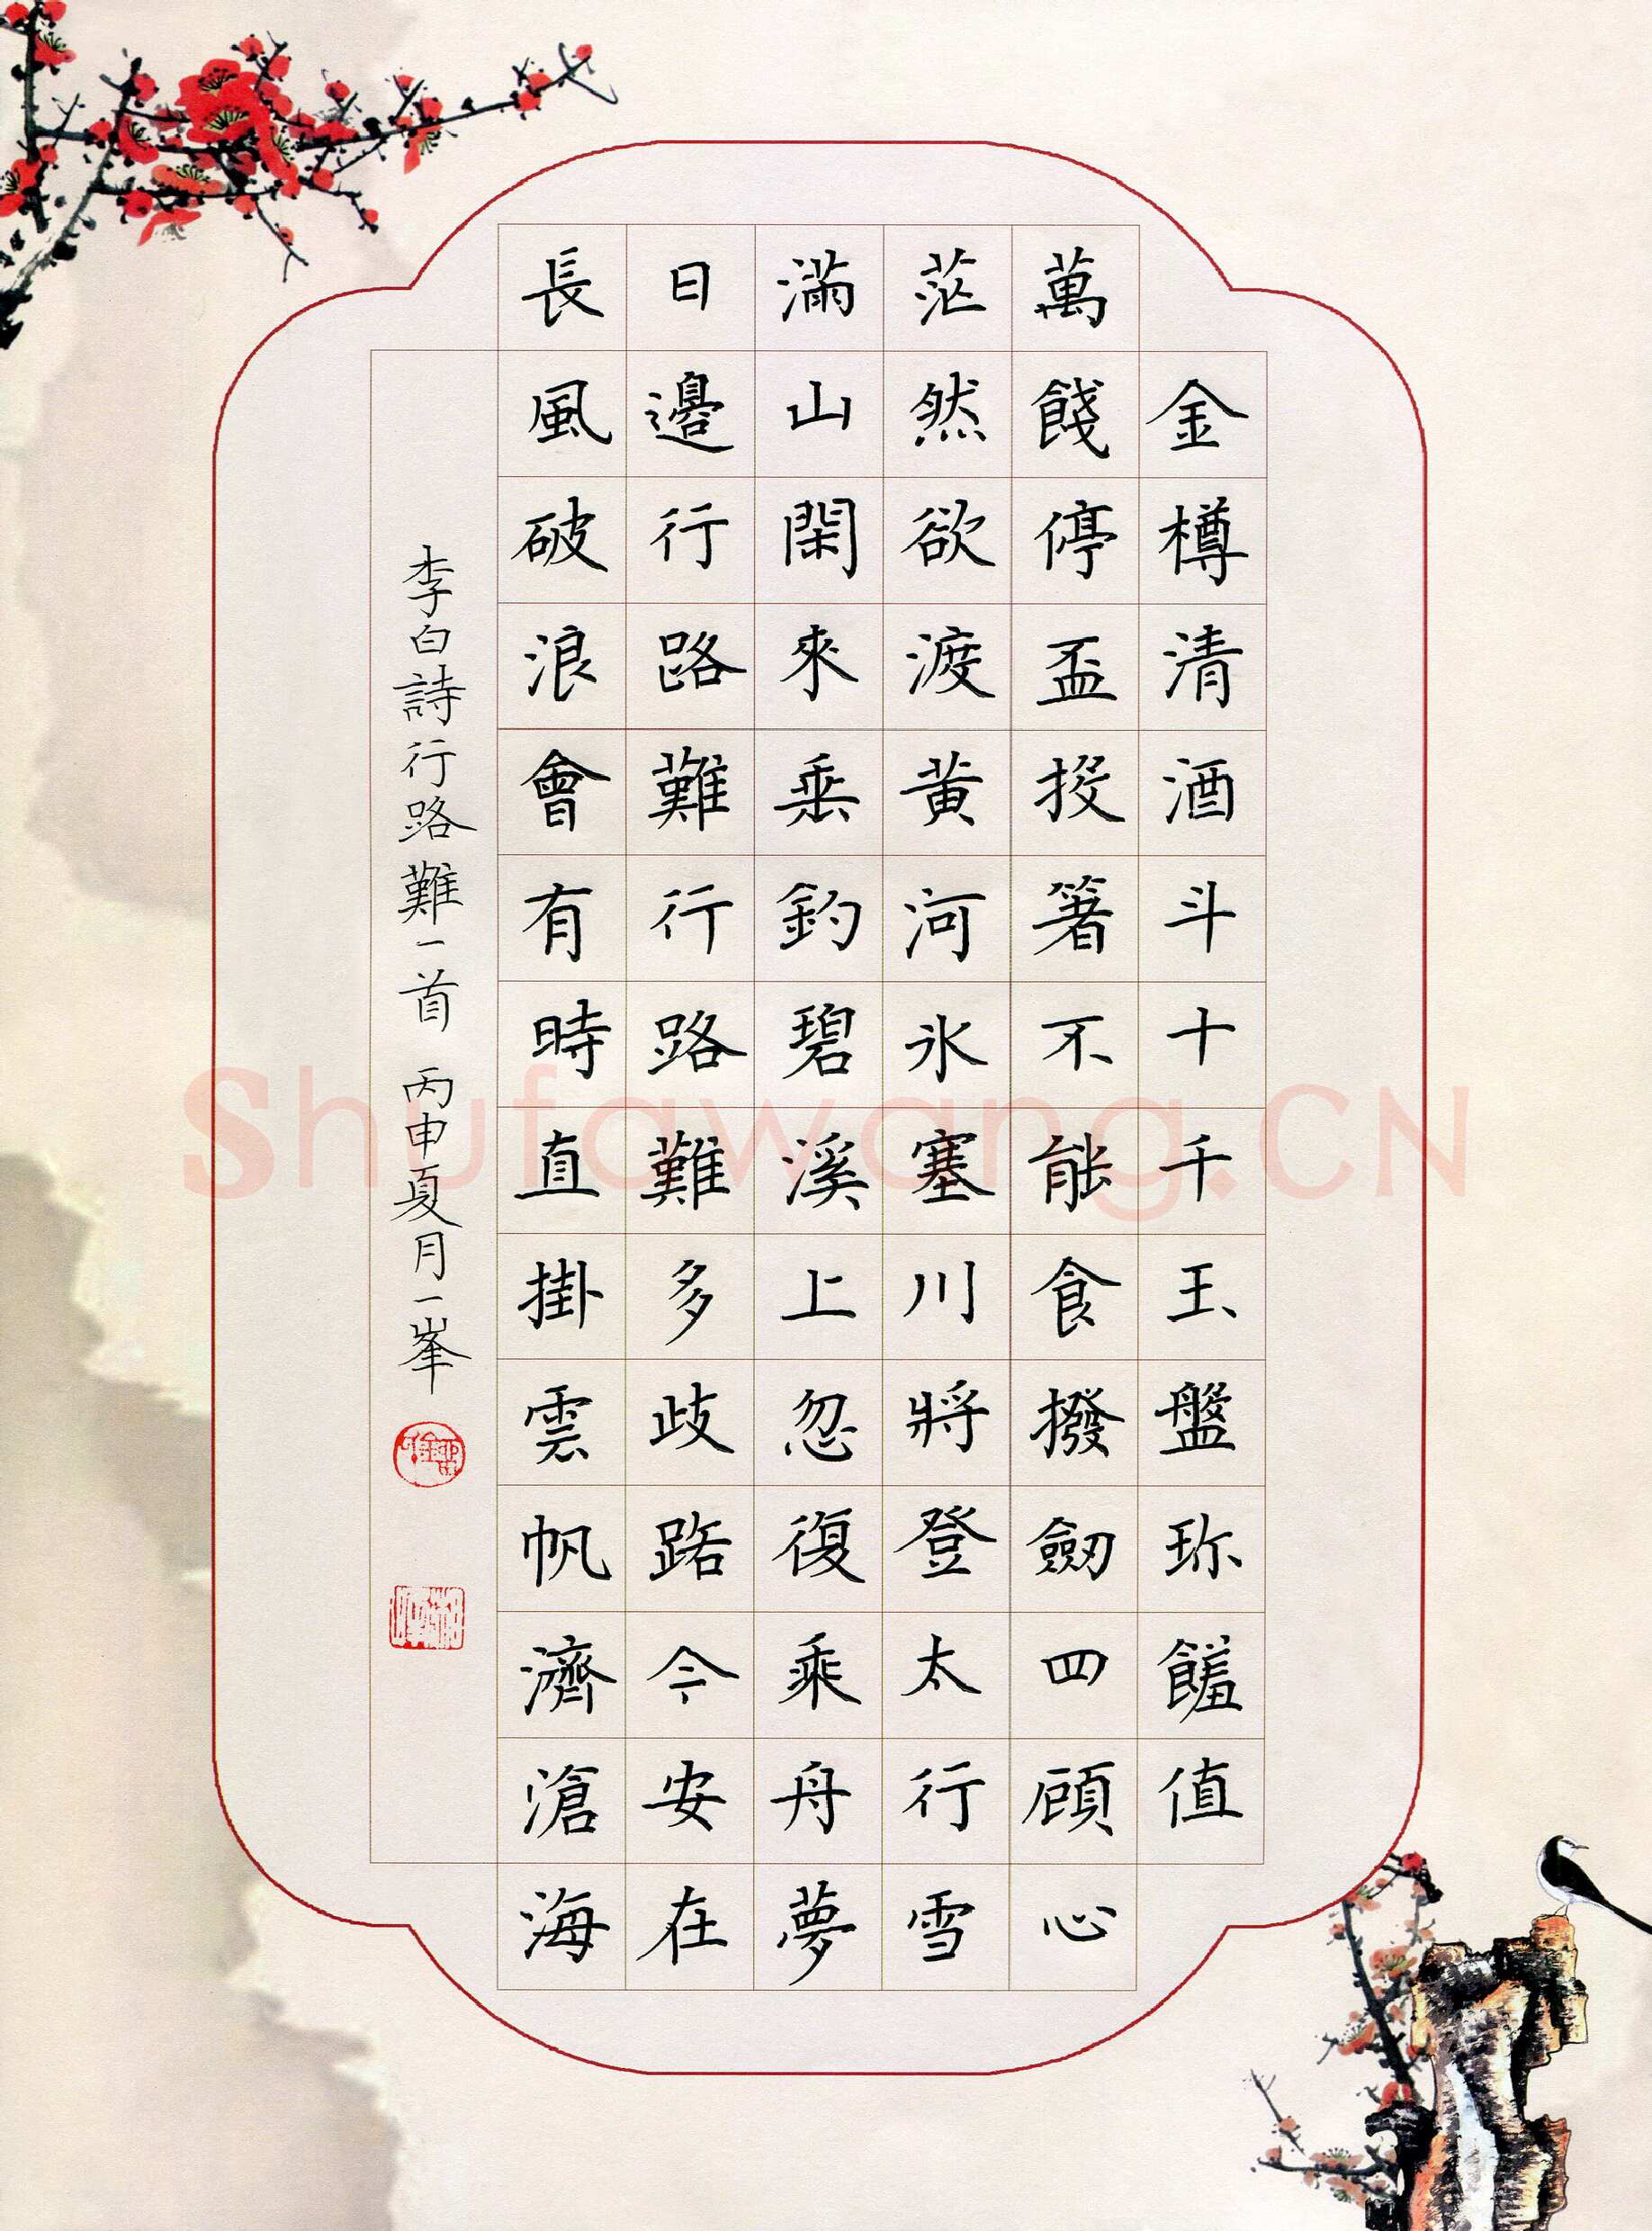 金樽清酒斗十千玉盤珎饈值
萬餞停盃投箸不能食撥劒四顧心
茫然欲渡黃河氷塞川將登太行雪
滿山閑來垂釣碧溪上忽復乘舟夢
日邊行路難行路難多歧路今安在
長風破浪會有時直掛雲帆濟滄海
李白詩行路難一首 丙申夏月一峯
Shufawang.CN